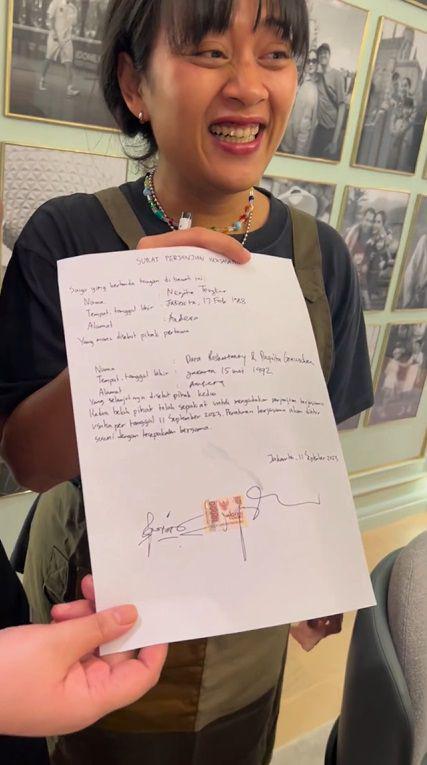 SURAT PERJANJIAN KERJASAMA
Saya yang bertanda tangan di bawah ini:
Nama :
Tempat, tanggal lahir : Jakarta, 17 Feb 1988
Alamat :
Yang mana disebut pihak pertama
Nama : Dara &
Tempat, tanggal lahir : 15 mei 1992
Alamat :
Yang selanjutnya disebut pihak kedua
Kedua belah pihak telah sepakat untuk mengadakan perjanjian kerjasama
usaha per tanggal 11 September 2023. Peraturan kerjasama akan diatur
sesuai dengan kesepakatan bersama.
Jakarta, 11 September 2023
10000